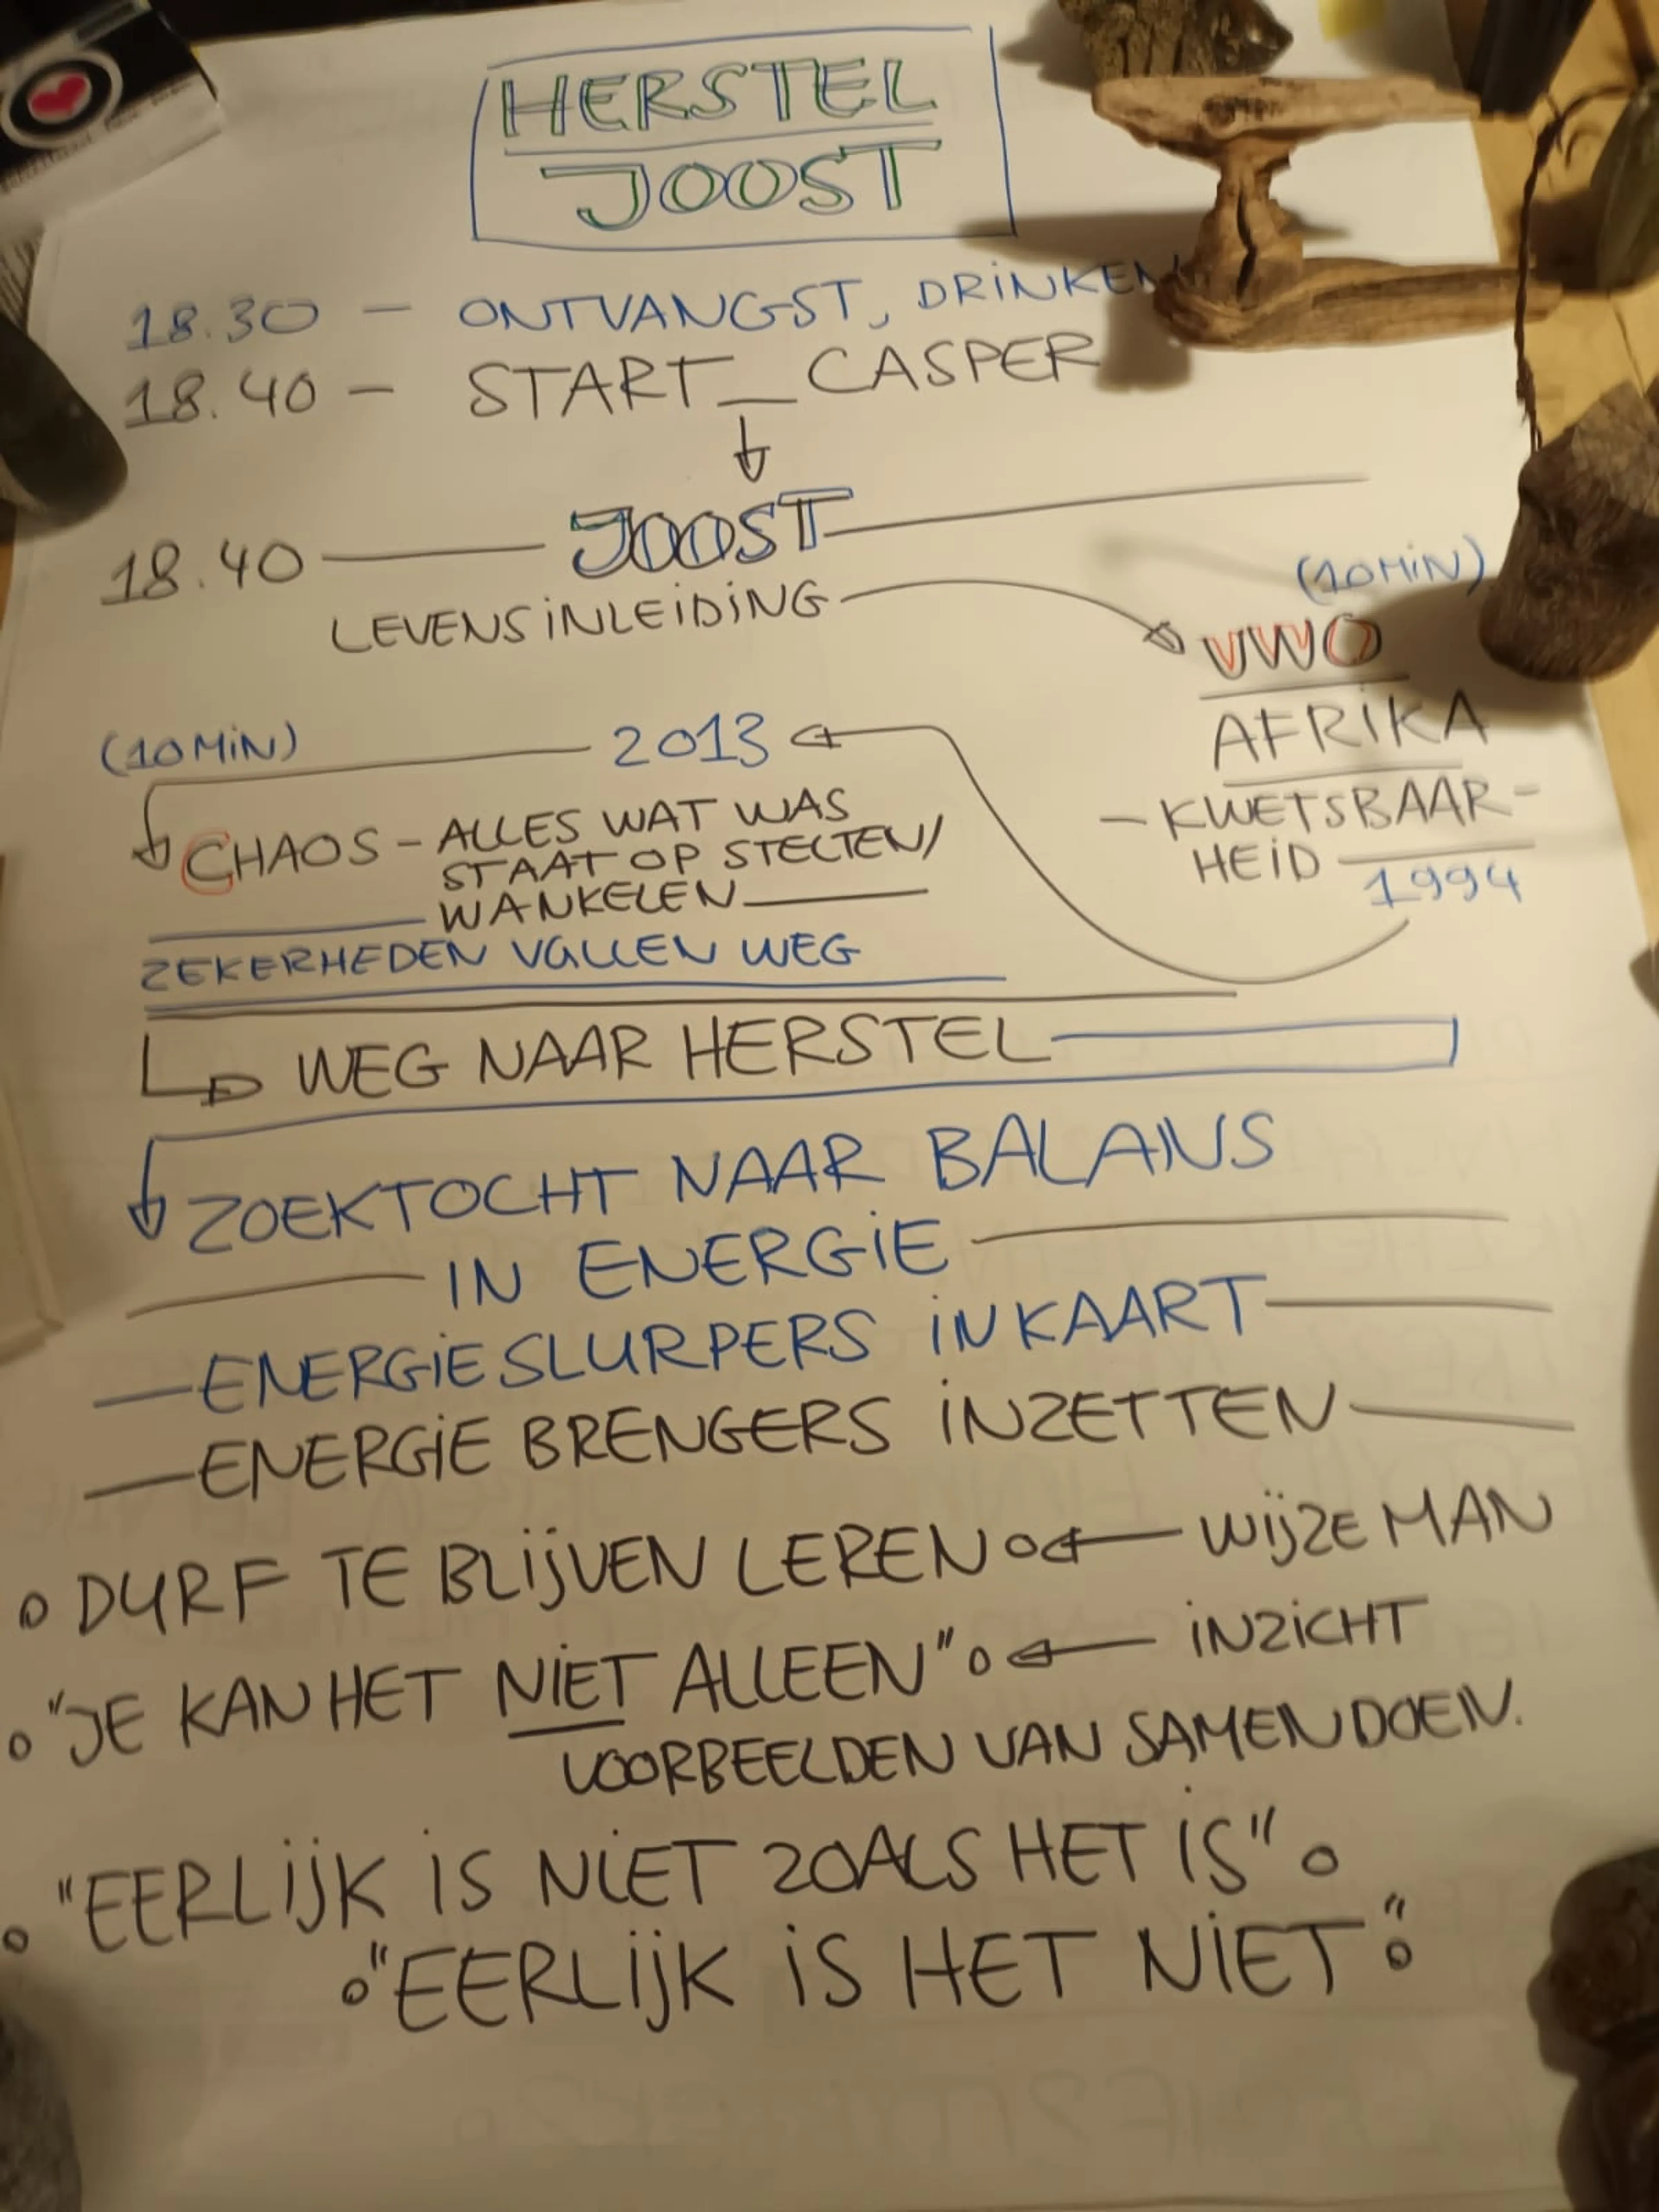 HERSTEL
JOOST
18.30 - ONTVANGST, DRINKEN
18.40 - START_CASPER
18.40 JOOST
LEVENSINLEIDING
(10MIN)
VWO
AFRIKA
- KWETSBAAR-
HEID
1994
(10MIN) 2013
CHAOS - ALLES WAT WAS
STAAT OP STELTEN/
WANKELEN
ZEKERHEDEN VALLEN WEG
WEG NAAR HERSTEL
ZOEKTOCHT NAAR BALANS
IN ENERGIE
- ENERGIESLURPERS IN KAART
- ENERGIE BRENGERS INZETTEN
DURF TE BLIJVEN LEREN WIJZE MAN
"JE KAN HET NIET ALLEEN" INZICHT
VOORBEELDEN VAN SAMEN DOEN.
"EERLIJK IS NIET ZOALS HET IS"
"EERLIJK IS HET NIET"